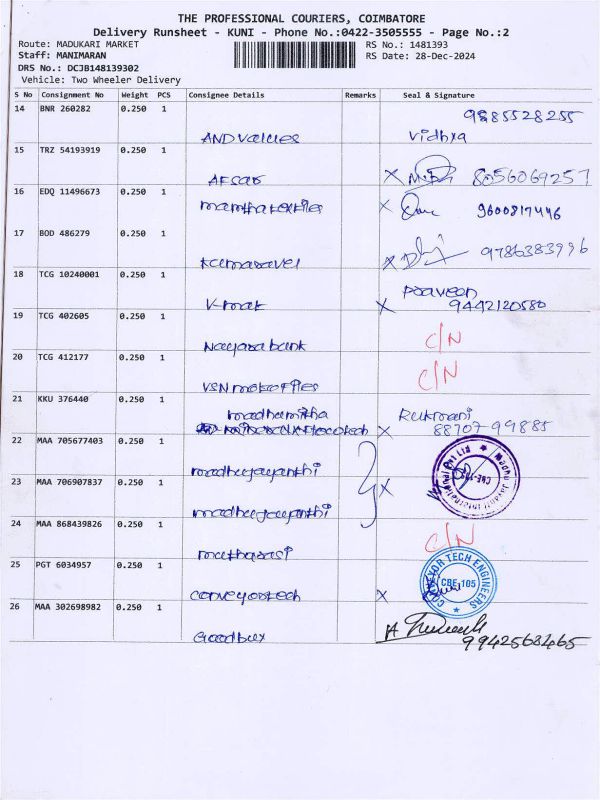 THE PROFESSIONAL COURIERS, COIMBATORE
Delivery Runsheet - KUNI - Phone No.:0422-3505555 - Page No.:2
Route: MADUKARI MARKET
RS No.: 1481393
Staff: MANIMARAN
RS Date: 28-Dec-2024
DRS No.: DCJB148139302
Vehicle: Two Wheeler Delivery
S No Consignment No Weight PCS Consignee Details Remarks Seal & Signature
14 BNR 260282 0.250 1
9885528255
AND values Vidhya
15 TRZ 54193919 0.250 1
Afsar 8056069257
16 EDQ 11496673 0.250 1
mamtha textiles 9600817446
17 BOD 486279 0.250 1
Kumaravel 9786383996
18 TCG 10240001 0.250 1
Praveen
V-mak 9442120580
19 TCG 402605 0.250 1
Nayasa bank C/N
20 TCG 412177 0.250 1
VSN motorles C/N
21 KKU 376440 0.250 1
madhamitha Rukmani
88707 99885
22 MAA 705677403 0.250 1
madhujayanthi
23 MAA 706907837 0.250 1
Madhu Jayanti International Pvt Ltd
CBE
madhujayanthi
24 MAA 868439826 0.250 1
muthurasi C/N
25 PGT 6034957 0.250 1
CONVEYOR TECH ENGINEERS
CBE 105
conveyortech
26 MAA 302698982 0.250 1
Goodbux 99425684465